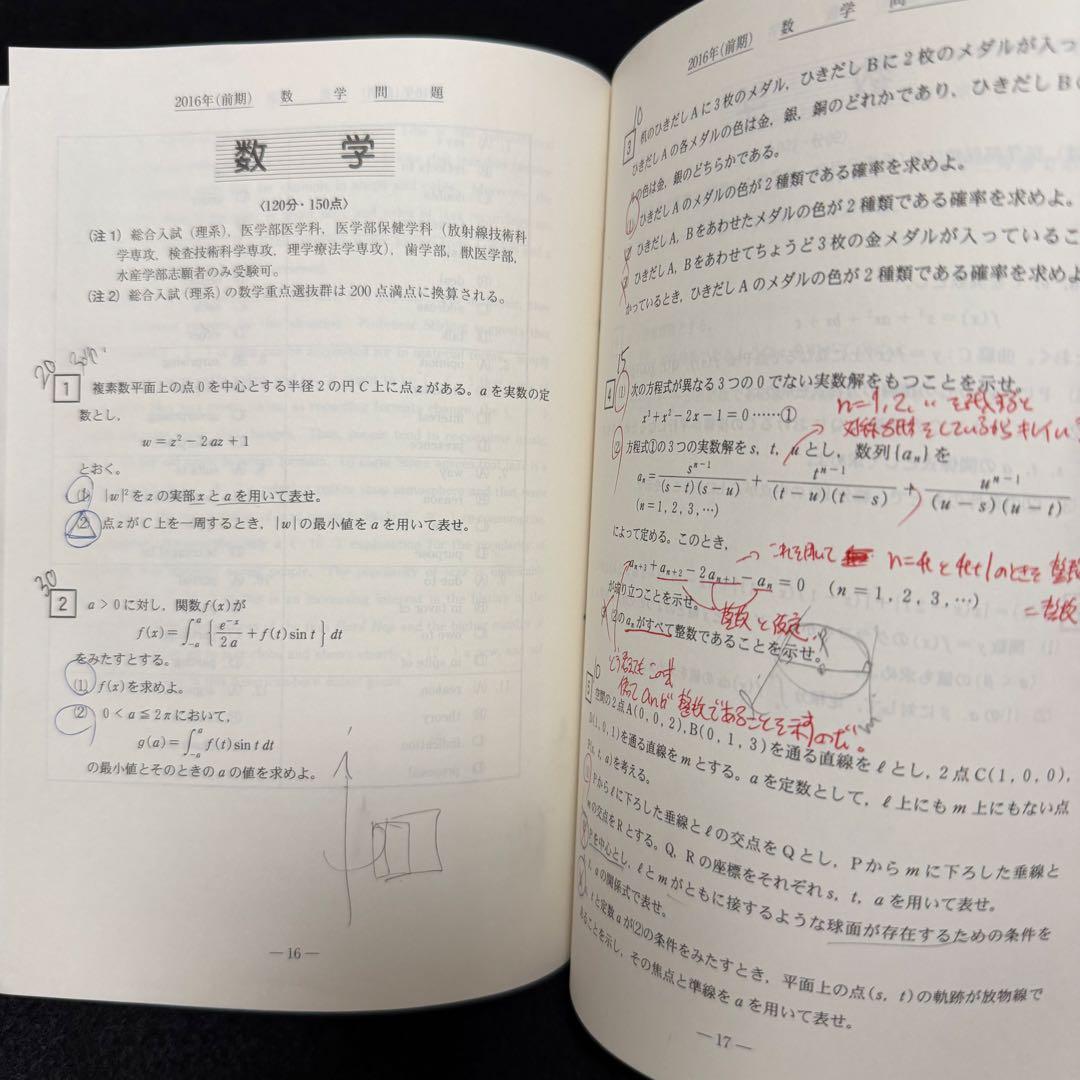 2016年(前期) 数学問題
数 学
〈120分・150点〉
(注1) 総合入試(理系),医学部医学科,医学部保健学科(放射線技術科
学専攻,検査技術科学専攻,理学療法学専攻),歯学部,獣医学部,
水産学部志願者のみ受験可。
(注2) 総合入試(理系)の数学重点選抜群は200点満点に換算される。
20
1 複素数平面上の点0を中心とする半径2の円C上に点zがある。aを実数の定
数とし,
w=z²-2az+1
とおく。
(1) |w|²をzの実部xとaを用いて表せ。
(2) 点zがC上を一周するとき,|w|の最小値をaを用いて表せ。
30
2 a>0に対し,関数f(x)が
f(x)=∫_{-a}^{a}{e^{-x}/2a+f(t)sin t}dt
をみたすとする。
(1) f(x)を求めよ。
(2) 0<a≦2πにおいて,
g(a)=∫_{-a}^{a}f(t)sin t dt
の最小値とそのときのaの値を求めよ。
—16—
2016年(前期) 数学問
10
3 机のひきだしAに3枚のメダル,ひきだしBに2枚のメダルが入っ
ひきだしAの各メダルの色は金,銀,銅のどれかであり,ひきだしB
の色は金,銀のどちらかである。
(1) ひきだしAのメダルの色が2種類である確率を求めよ。
ひきだしA,Bをあわせたメダルの色が2種類である確率を求めよ。
ひきだしA,Bをあわせてちょうど3枚の金メダルが入っているこ
かっているとき,ひきだしAのメダルの色が2種類である確率を求めよ
15
4 (1) 次の方程式が異なる3つの0でない実数解をもつことを示せ。
x³+x²-2x-1=0……①
n=1,2,
(2) 方程式①の3つの実数解をs,t,uとし,数列{aₙ}を
aₙ=s^{n-1}/(s-t)(s-u)+t^{n-1}/(t-u)(t-s)+u^{n-1}/(u-s)(u-t)
(n=1,2,3,…)
によって定める。このとき,
これを用いて
aₙ₊₃+aₙ₊₂-2aₙ₊₁-aₙ=0 (n=1,2,3,…)
が成り立つことを示せ。
整数と仮定
(2)のaₙがすべて整数であることを示せ。
10
整数であることを示す
5 空間の2点A(0,0,2),B(0,1,3)を通る直線をℓとし,2点C(1,0,0),
D(1,0,1)を通る直線をmとする。aを定数として,ℓ上にもm上にもない点
P(s,t,a)を考える。
Pからℓに下ろした垂線とℓの交点をQとし,Pからmに下ろした垂線と
mの交点をRとする。Q,Rの座標をそれぞれs,t,aを用いて表せ。
Pを中心とし,ℓとmがともに接するような球面が存在するための条件を
s,t,aの関係式で表せ。
s,tと定数aが(2)の条件をみたすとき,平面上の点(s,t)の軌跡が放物線で
あることを示し,その焦点と準線をaを用いて表せ。
—17—